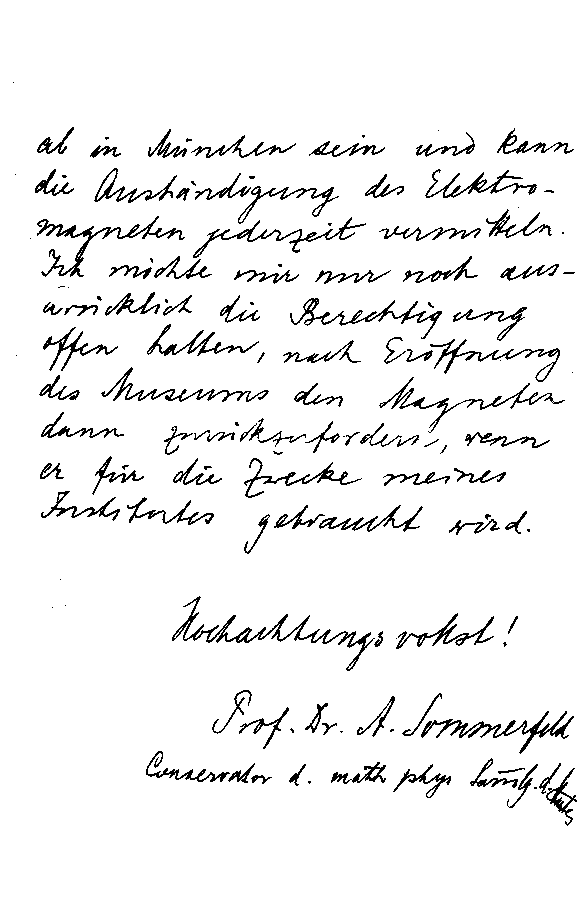 ab in München sein und kann
die Aushändigung des Elektro-
magneten jederzeit vermitteln.
Ich möchte mir nur noch aus-
drücklich die Berechtigung
offen halten, nach Eröffnung
des Museums den Magneten
dann zurückzufordern, wenn
er für die Zwecke meines
Institutes gebraucht wird.
Hochachtungsvollst!
Prof. Dr. A. Sommerfeld
Conservator d. math phys Samlg. d.